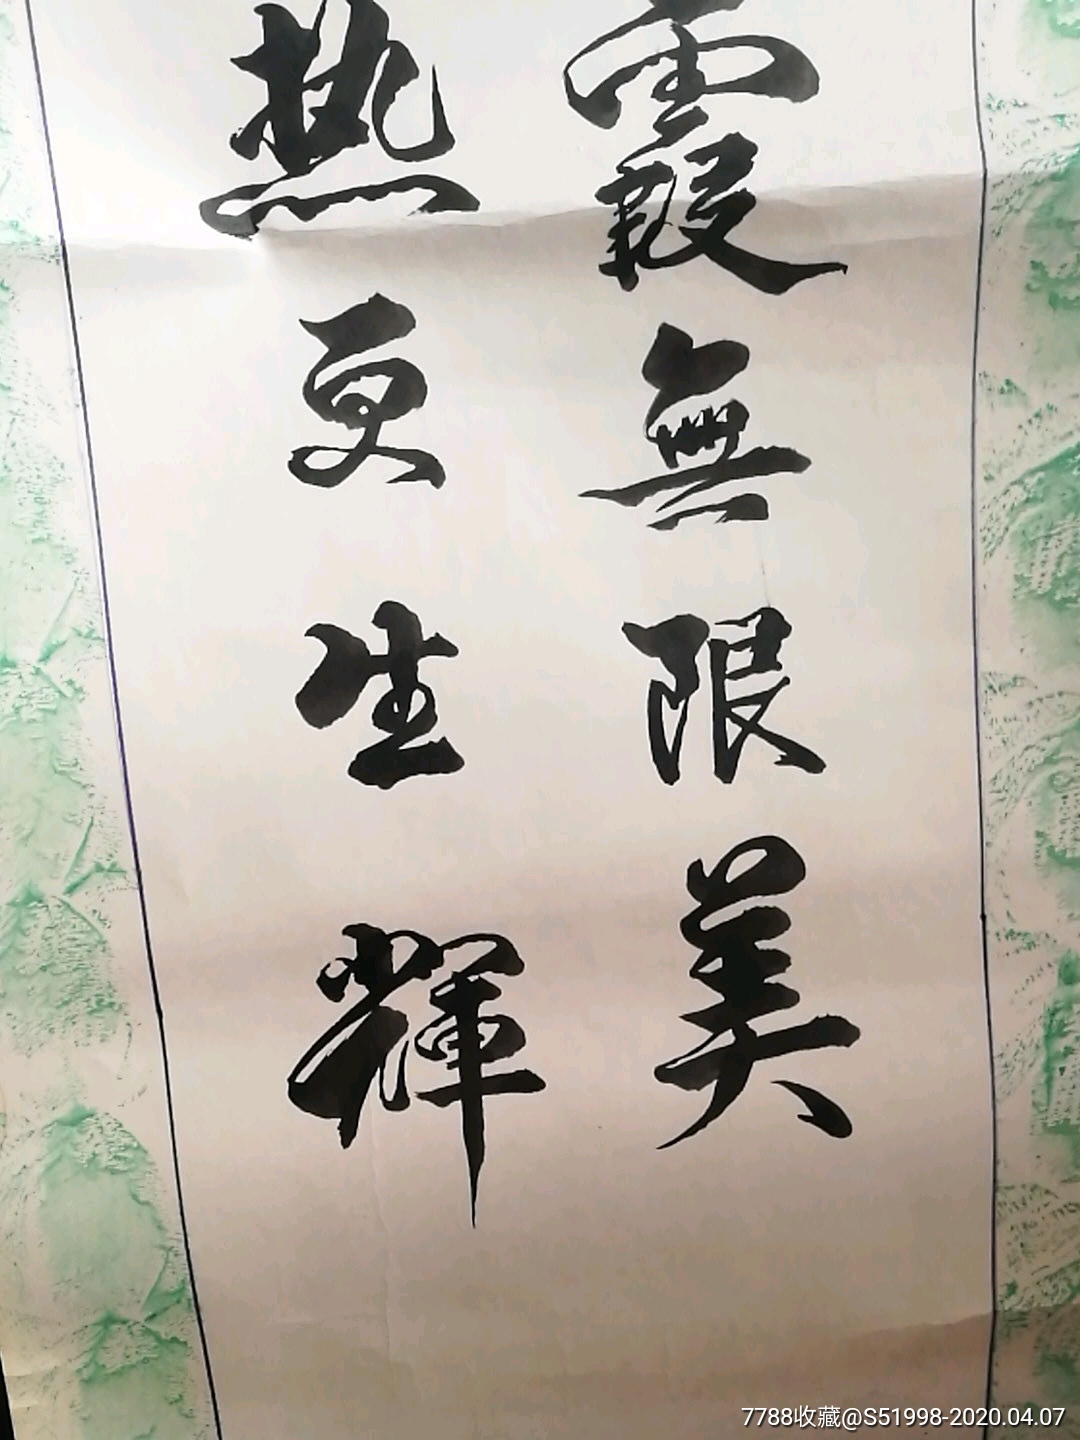 霞無限美
热更生輝
7788收藏@S51998-2020.04.07